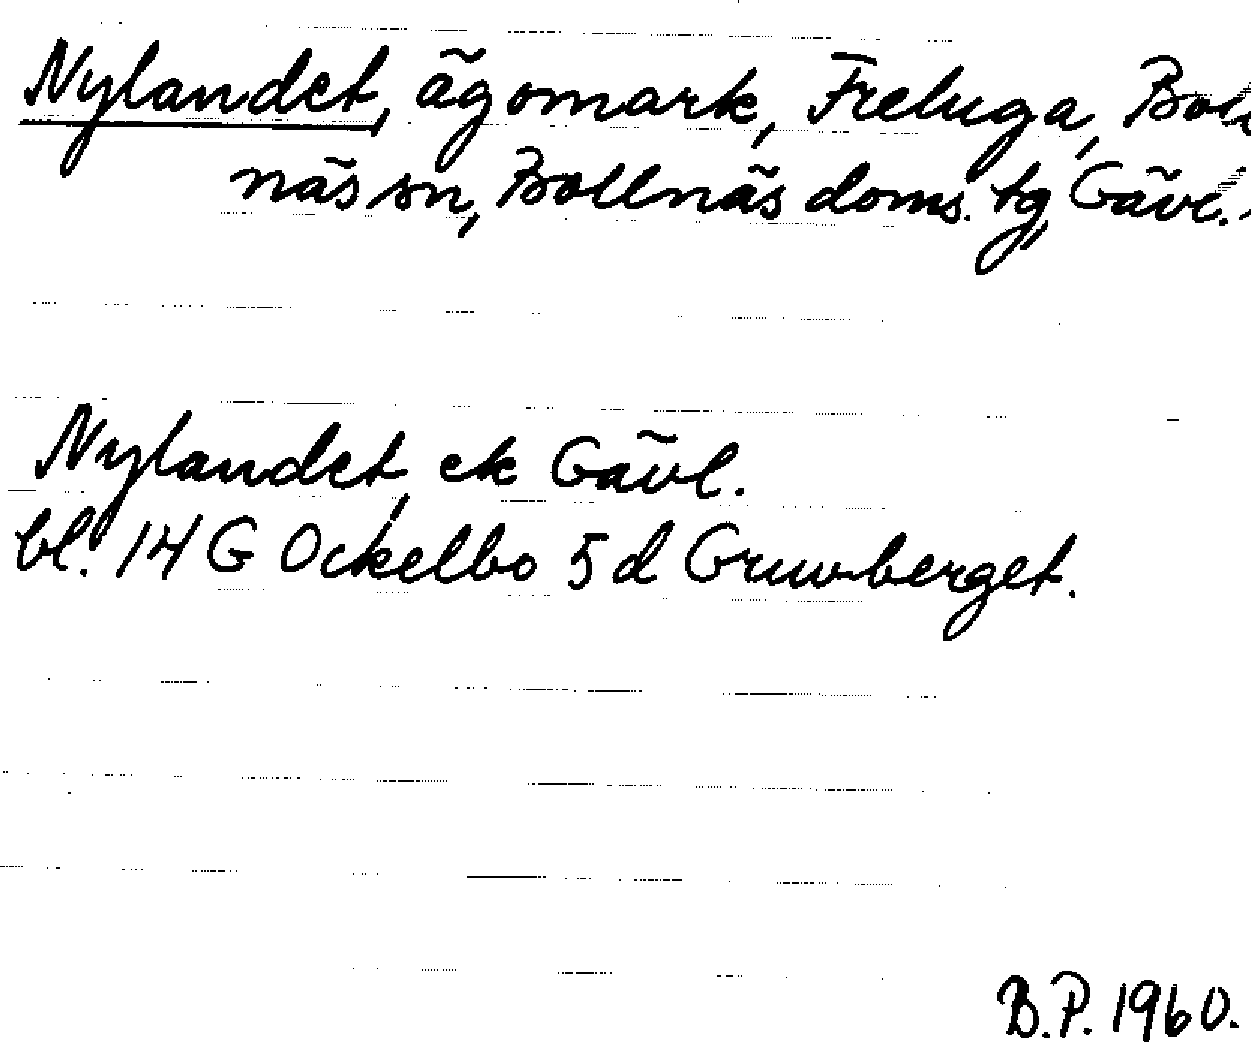 Nylandet, ägomark, Freluga, Boll-
näs sn, Bollnäs doms. tg, Gävl.
Nylandet, ek Gävl.
bl. 14 G Ockelbo 5 d Gruvberget.
B.P. 1960.